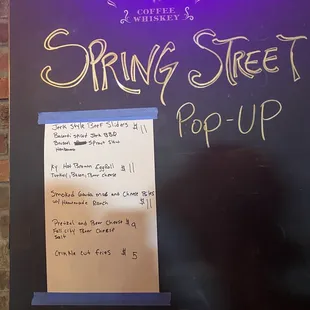 COFFEE
WHISKEY
SPRING STREET
POP-UP
Jerk Style Beef Sliders $11
Bacardi spiced Jerk BBQ
Brussel Sprout Slaw
Ky. Hot Brown Eggroll $11
Turkey, Bacon, Beer cheese
Smoked Gouda mac and Cheese Bites
w/ Homemade Ranch $11
Pretzel and Beer Cheese $9
Fall City Beer Cheese
Salt
Crinkle cut fries $5